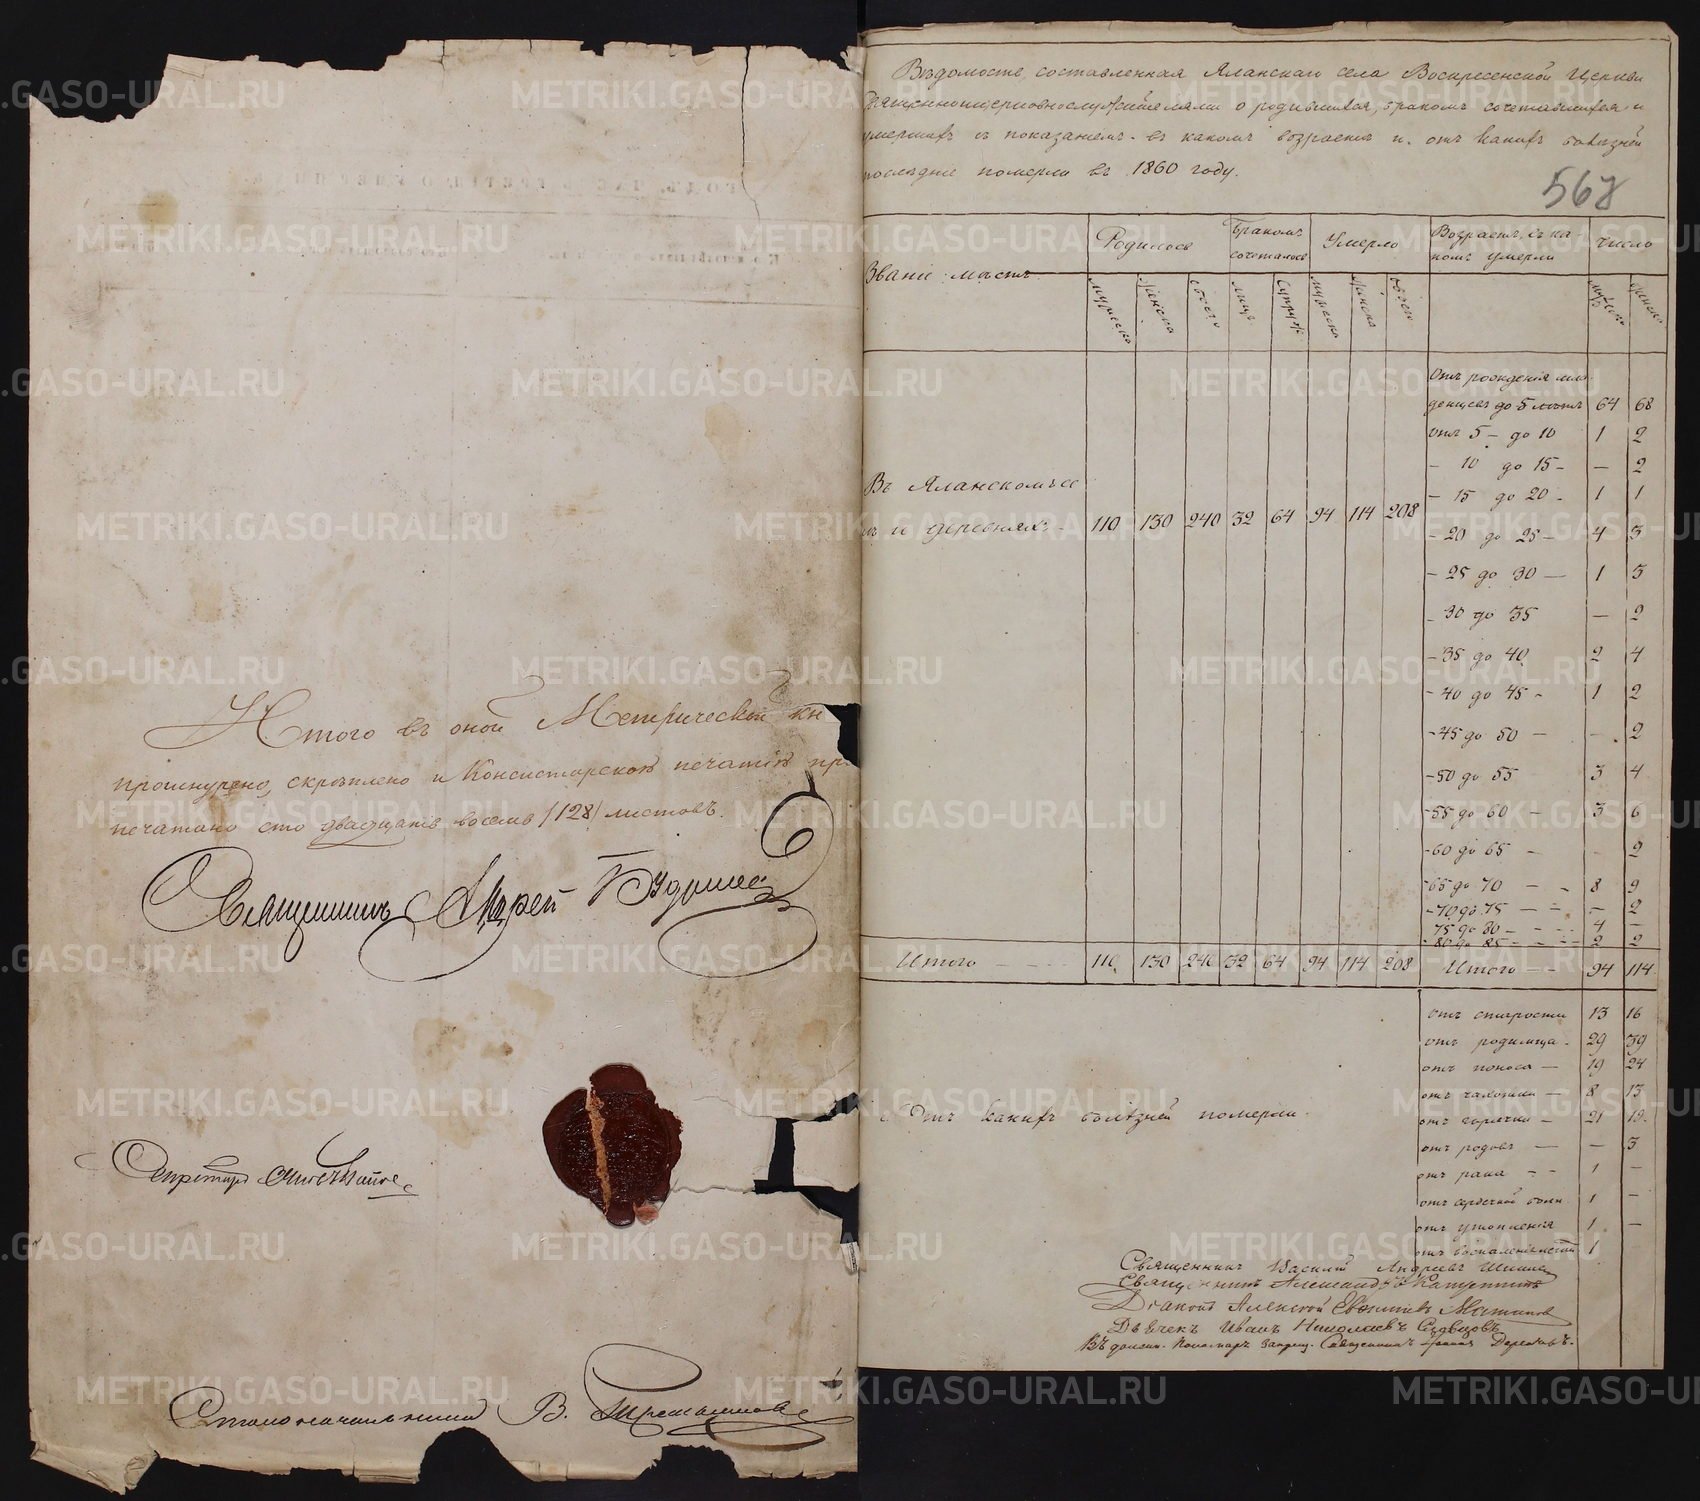 Итого въ оной Метрической кн
прошнурено, скрѣплено и Консисторскою печатью пр
печатано сто двадцать восемь /128/ листовъ.
Священникъ Андрей
Секретарь
Столоначальникъ В.
Вѣдомость, составленная Яланскаго села Воскресенской Церкви
священноцерковнослужителями о родившихся, бракомъ сочетавшихся и
умершихъ съ показаніемъ въ какомъ возрастѣ и отъ какихъ болѣзней
послѣдніе померли въ 1860 году.
568
Званіе мѣстъ
Родилось
Бракомъ сочеталось
Умерло
Возрастъ, въ ка-
комъ умерли
Число
мужеска женска обоего лицъ супруж мужеска женска обоего мужеска женска
Отъ рожденія мла-
денцевъ до 5 лѣтъ 64 68
отъ 5 - до 10 1 2
- 10 до 15 - - 2
- 15 до 20 - 1 1
Въ Яланскомъ се
лѣ и деревняхъ - 110 130 240 32 64 94 114 208
- 20 до 25 - 4 3
- 25 до 30 - 1 3
- 30 до 35 - 2
- 35 до 40 2 4
- 40 до 45 - 1 2
- 45 до 50 - - 2
- 50 до 55 3 4
- 55 до 60 - 3 6
- 60 до 65 - - 2
- 65 до 70 - - 8 9
- 70 до 75 - - - 2
75 до 80 - - - 4 -
- 80 до 85 - - - 2 2
Итого - - - 110 130 240 32 64 94 114 208 Итого - - 94 114
отъ старости 13 16
отъ родимца - 29 39
отъ поноса - 19 24
отъ чахотки - 8 13
Отъ какихъ болѣзней померли.
отъ горячки - 21 19
отъ родовъ - - 3
отъ рака - - 1 -
отъ сердечной болѣз 1 -
отъ утопленія 1 -
отъ воспаленія 1
Священникъ Василій Андреевъ
Священникъ Александръ
Діаконъ Алексей
Дьячекъ Иванъ Николаевъ
Въ должн. Пономаря запрещ. Священникъ